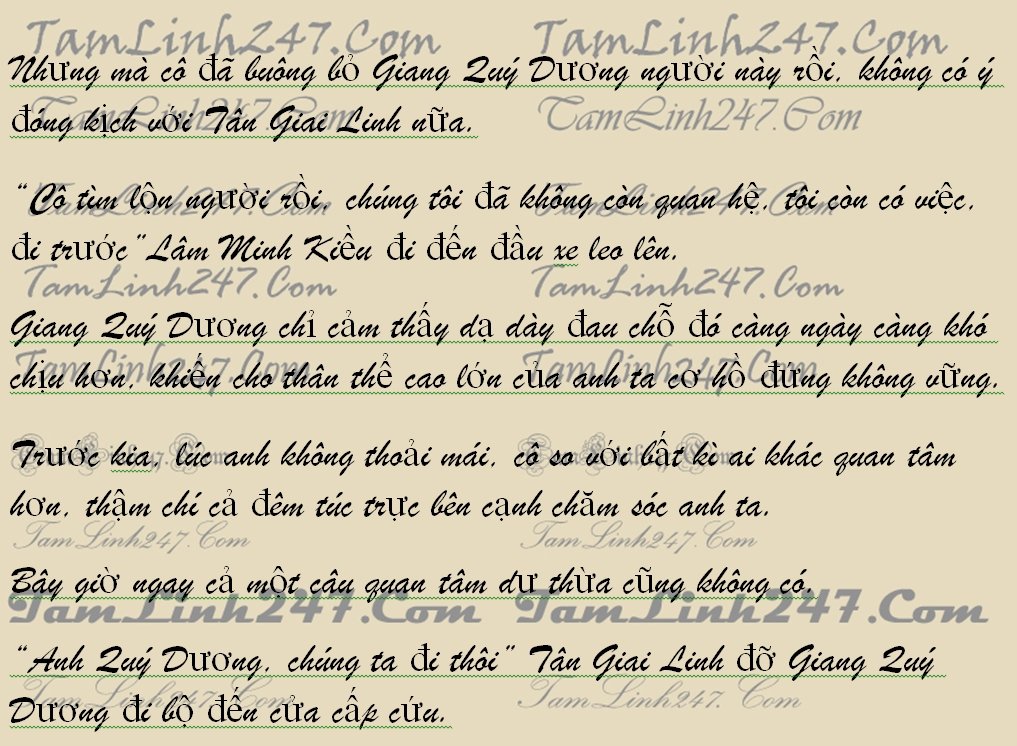 TamLinh247.Com TamLinh247.Com
Nhưng mà cô đã buông bỏ Giang Quý Dương người này rồi, không có ý
đóng kịch với Tần Giai Linh nữa.
TamLinh247.Com TamLinh247.Com
"Cô tìm lộn người rồi, chúng tôi đã không còn quan hệ, tôi còn có việc,
TamLinh247.Com TamLinh247.Com
đi trước" Lâm Minh Kiều đi đến đầu xe leo lên.
TamLinh247.Com TamLinh247.Com
Giang Quý Dương chỉ cảm thấy dạ dày đau chỗ đó càng ngày càng khó
chịu hơn, khiến cho thân thể cao lớn của anh ta cơ hồ đứng không vững.
TamLinh247.Com TamLinh247.Com
Trước kia, lúc anh không thoải mái, cô so với bất kì ai khác quan tâm
TamLinh247.Com TamLinh247.Com
hơn, thậm chí cả đêm túc trực bên cạnh chăm sóc anh ta.
TamLinh247.Com TamLinh247.Com
Bây giờ ngay cả một câu quan tâm dư thừa cũng không có.
TamLinh247.Com TamLinh247.Com
"Anh Quý Dương, chúng ta đi thôi" Tân Giai Linh đỡ Giang Quý
TamLinh247.Com TamLinh247.Com
Dương đi bộ đến cửa cấp cứu.